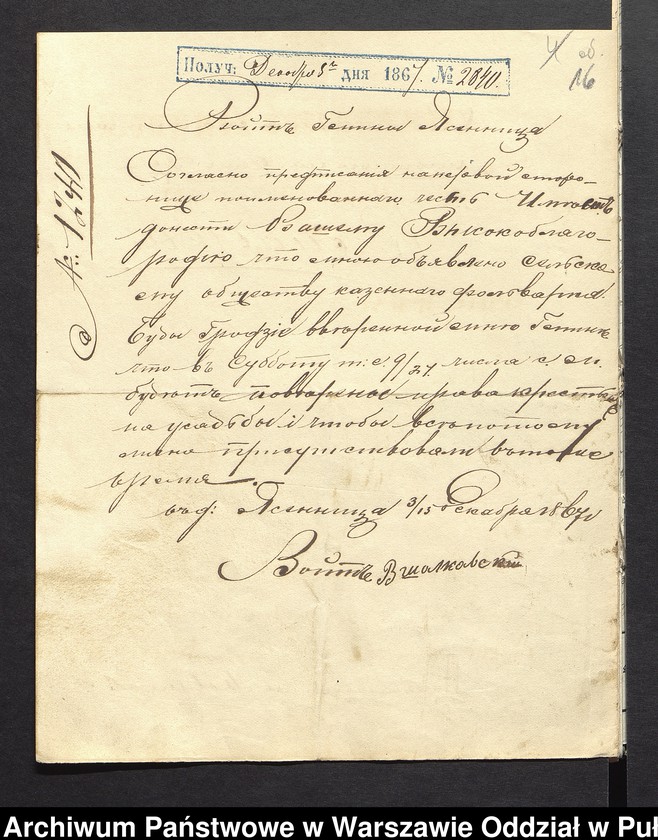 4 об.
16
Получ: Декабря 5го дня 1867. № 2840.
№ 1240
Войтъ Гмины Ясенница
Согласно предписанія на первой сторо-
нице поименованнаго честь Имеетъ
донести Вашему Высокоблаго-
родію что мною объявлено сельска-
му обществу казеннаго фольварка
Буды Гродзіе вверенной мне Гмины
что въ субботу т. е. 9/27 числа с. м.
будутъ права крестьян
на усадьбы і чтобы все по тому
присутствовали в тоже
время.
въ д: Ясенница 3/15 Декабря 1867
Войтъ
Archiwum Państwowe w Warszawie Oddział w Puł